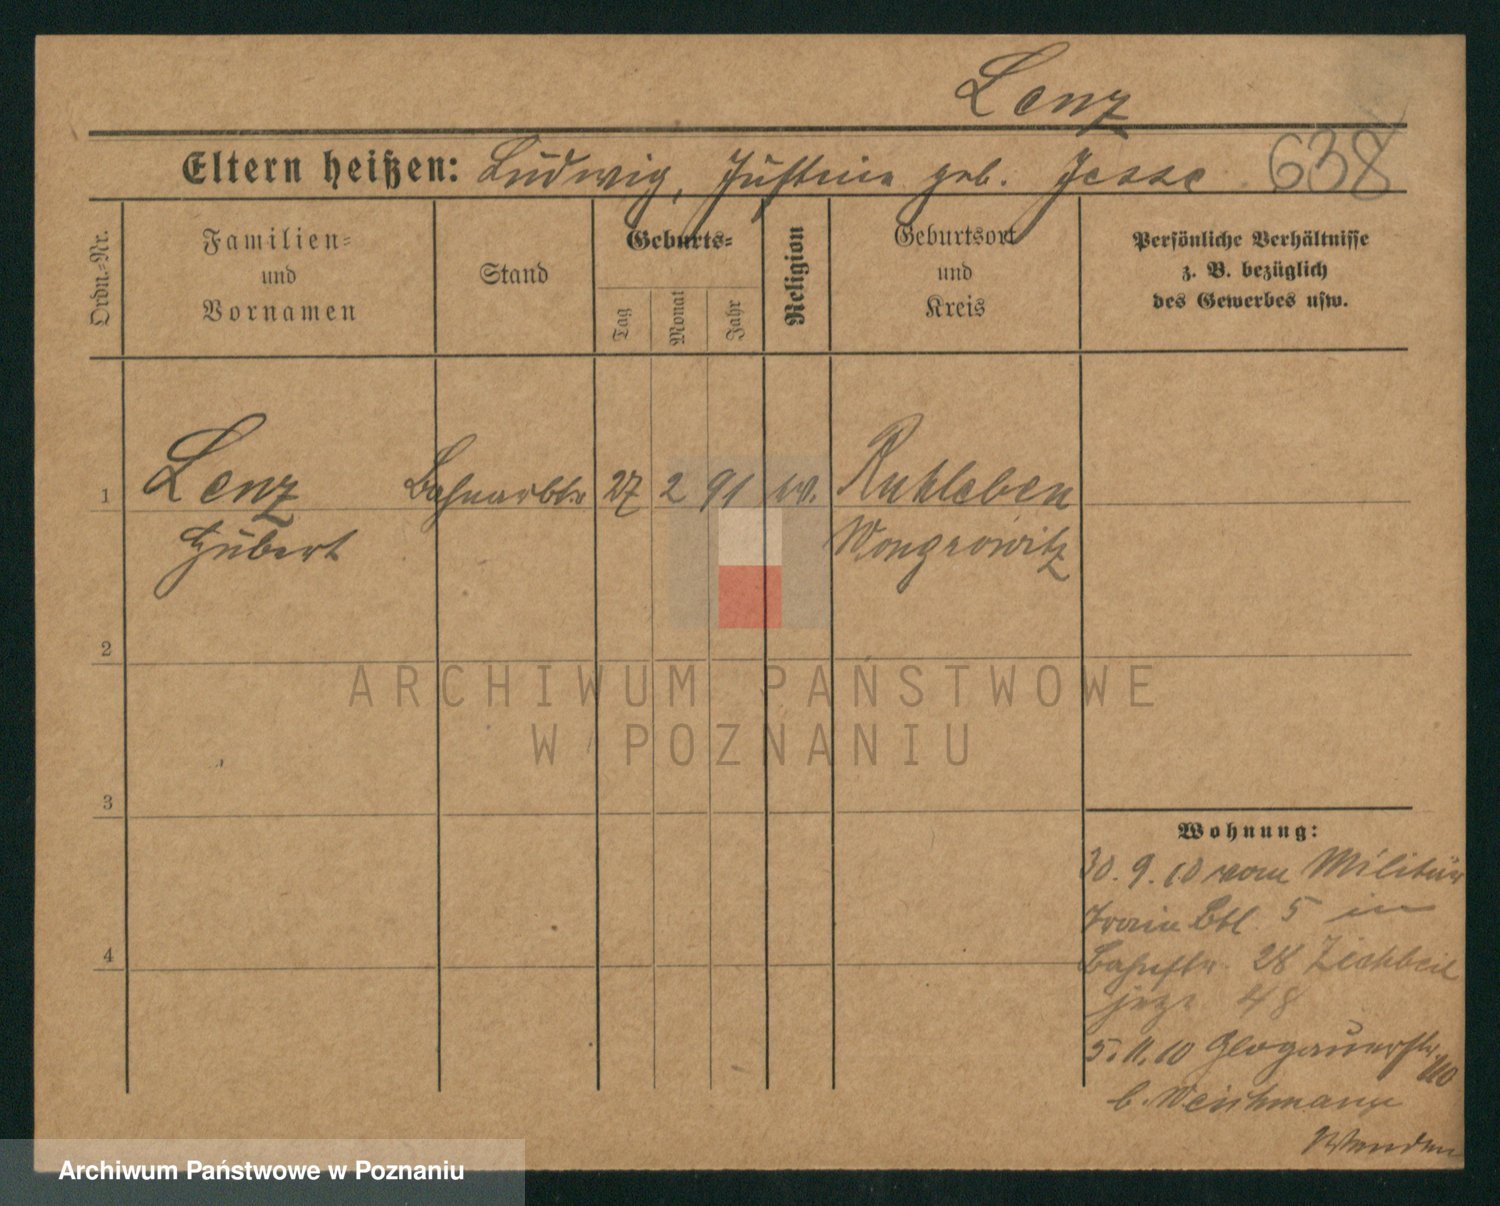 Lenz
Eltern heißen: Ludwig, Justine geb. Jesse 638
Ordn.-Nr.
Familien-
und
Vornamen
Stand
Geburts-
Tag
Monat
Jahr
Religion
Geburtsort
und
Kreis
Persönliche Verhältnisse
z. B. bezüglich
des Gewerbes usw.
1 Lenz Bahnarbtr 27 2 91 Ruhleben
Hubert Wongrowitz
2
3
4
Wohnung:
30. 9. 10 vom Militär
Train Btl. 5 in
Bahnstr. 28
48
5. 11. 10 Glogauerstr. 110
b.
ARCHIWUM PAŃSTWOWE
W POZNANIU
Archiwum Państwowe w Poznaniu